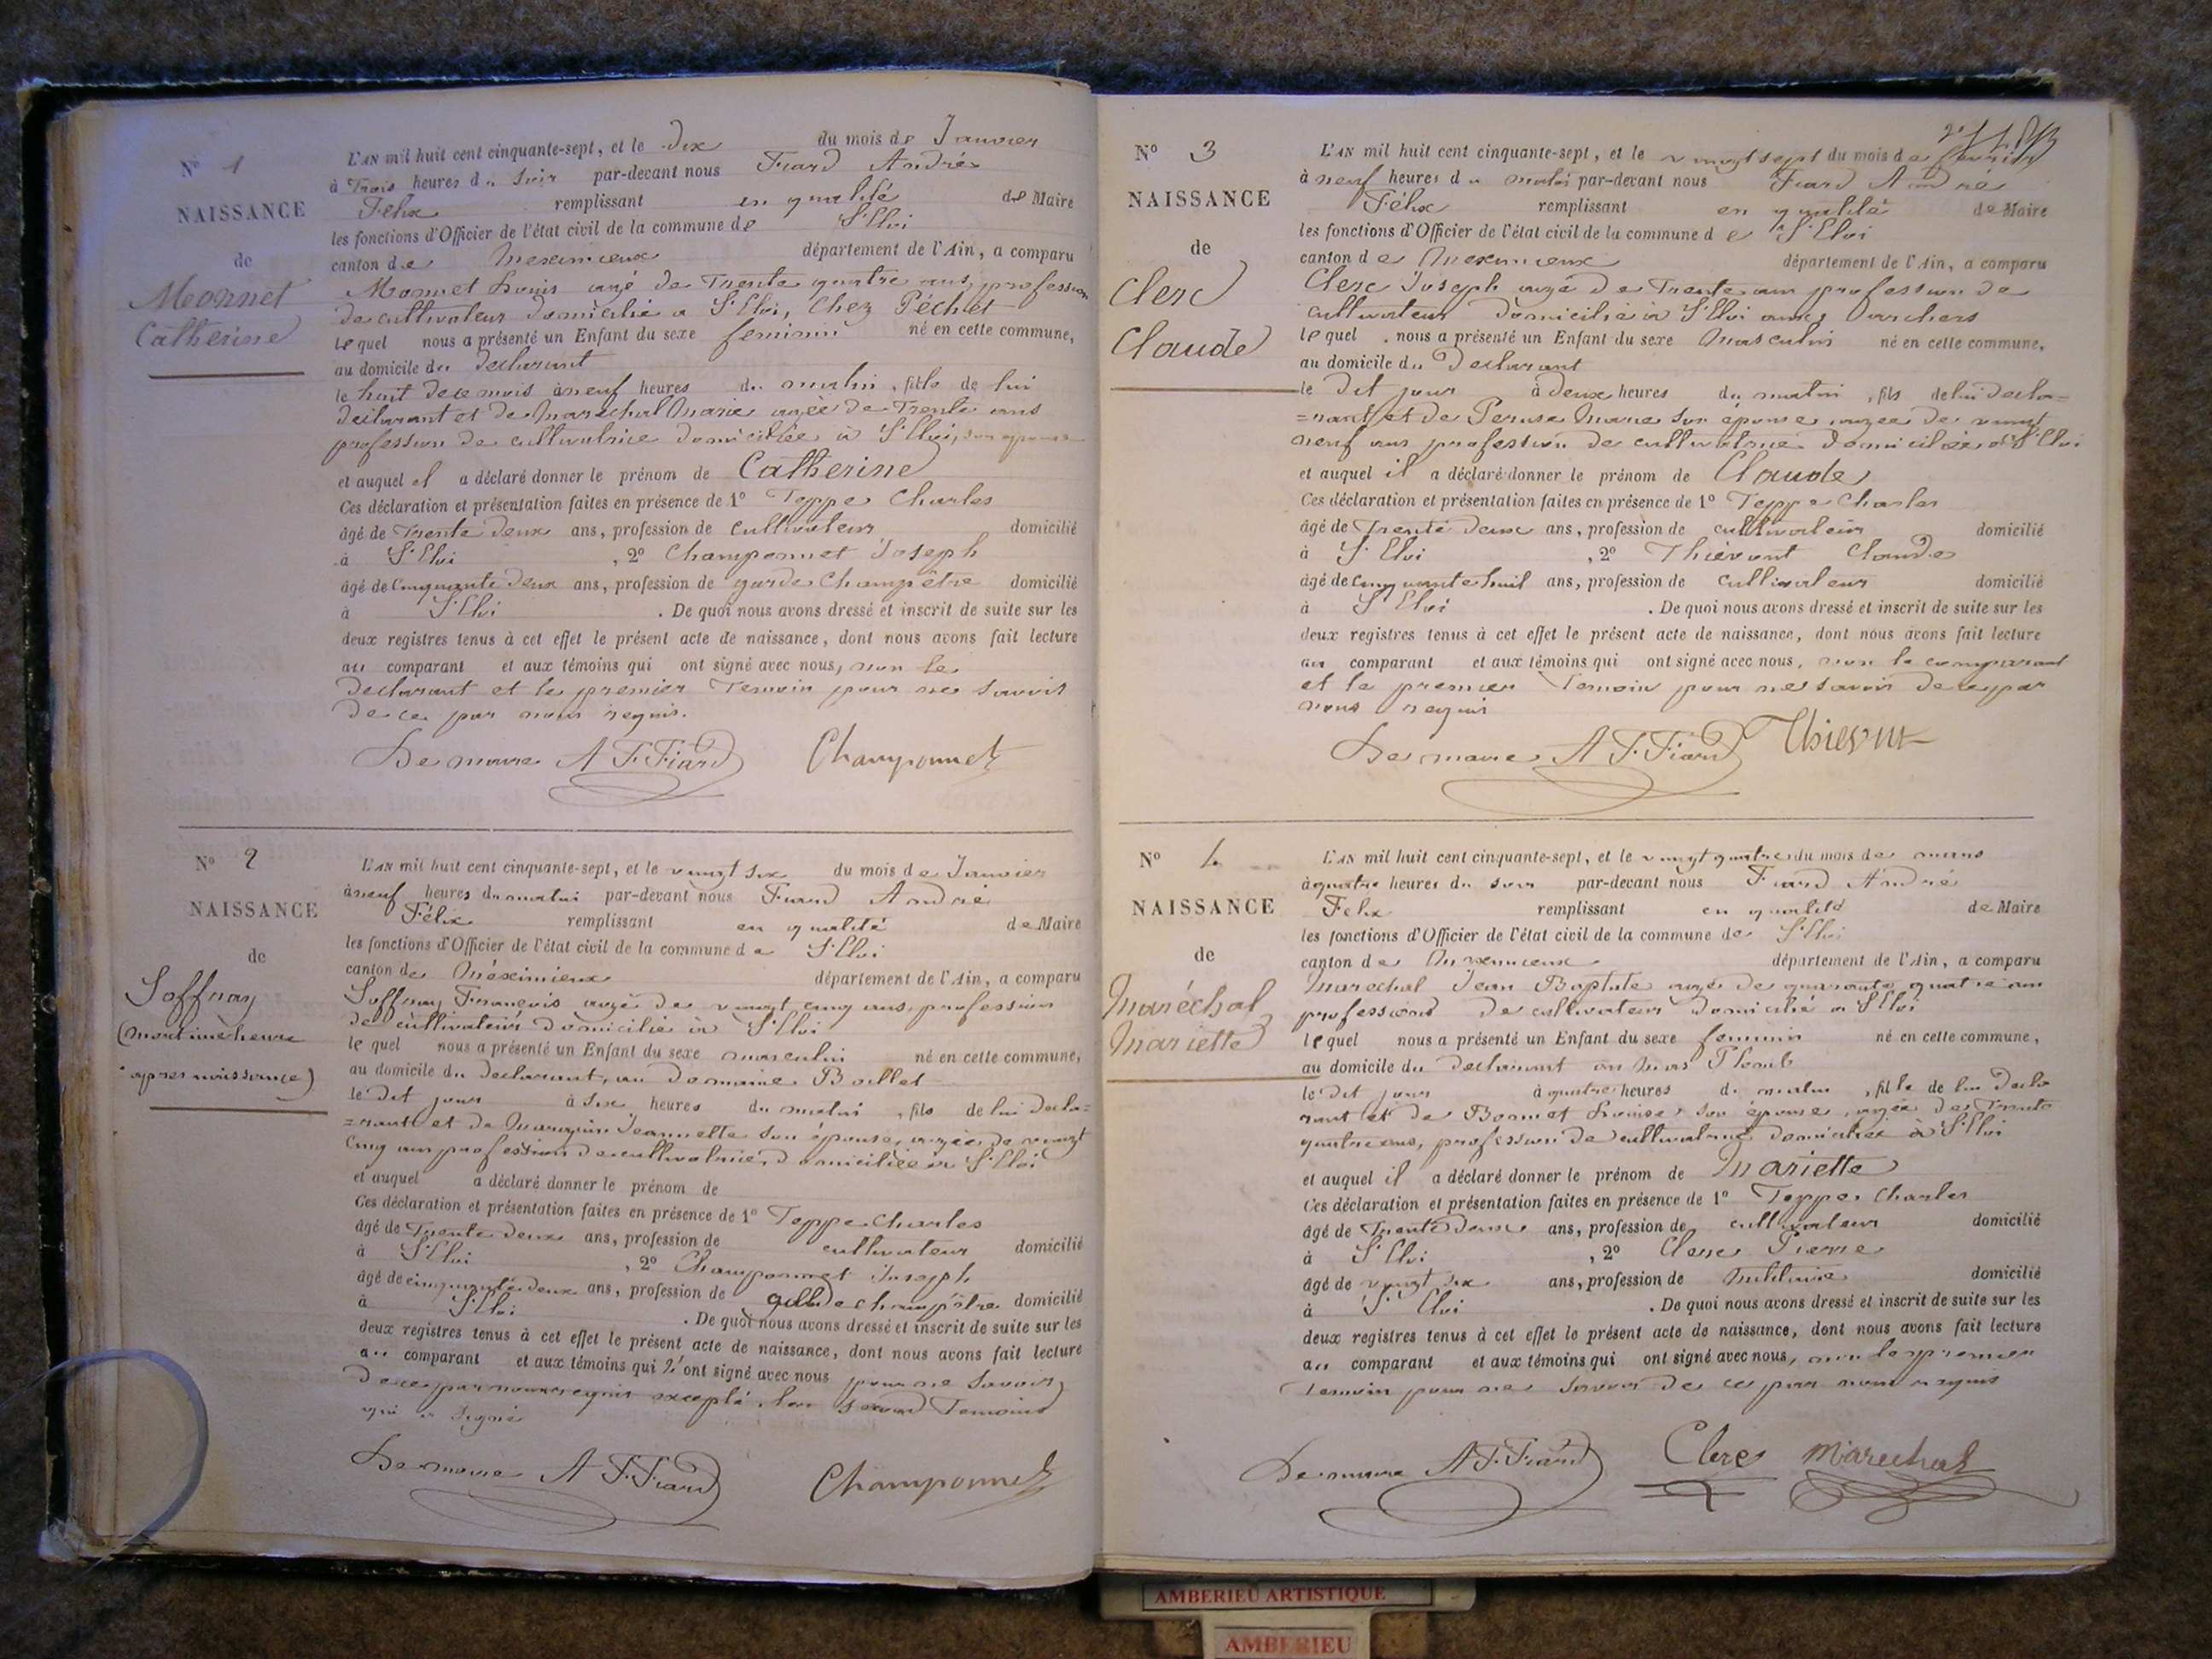 N° 1
NAISSANCE
de
Monnet
Catherine
L'AN mil huit cent cinquante-sept, et le dix du mois de Janvier
à Trois heures du soir par-devant nous Fiard André
Félix remplissant en qualité de Maire
les fonctions d'Officier de l'état civil de la commune de St Eloi
canton de Meximieux département de l'Ain, a comparu
Monnet Louis agé de Trente quatre ans, profession
de cultivateur domicilié a St Eloi, Chez Péchet
lequel nous a présenté un Enfant du sexe feminin né en cette commune,
au domicile du declarant
le huit de ce mois à neuf heures du matin, fille de lui
declarant et de Maréchal Marie agée de Trente ans
profession de cultivatrice domiciliée à St Eloi, son epouse
et auquel il a déclaré donner le prénom de Catherine
Ces déclaration et présentation faites en présence de 1° Teppe Charles
âgé de Trente deux ans, profession de cultivateur domicilié
à St Eloi, 2° Champonnet Joseph
âgé de Cinquante deux ans, profession de garde Champêtre domicilié
à St Eloi. De quoi nous avons dressé et inscrit de suite sur les
deux registres tenus à cet effet le présent acte de naissance, dont nous avons fait lecture
au comparant et aux témoins qui ont signé avec nous, non le
declarant et le premier Temoin pour ne savoir
de ce par nous requis.
Le maire A F. Fiard Champonnet
N° 2
NAISSANCE
de
Soffray
(mort une heure
apres naissance)
L'AN mil huit cent cinquante-sept, et le vingt six du mois de Janvier
à neuf heures du matin par-devant nous Fiard André
Félix remplissant en qualité de Maire
les fonctions d'Officier de l'état civil de la commune de St Eloi
canton de Méximieux département de l'Ain, a comparu
Soffray François agé de vingt cinq ans, profession
de cultivateur domicilié à St Eloi
lequel nous a présenté un Enfant du sexe masculin né en cette commune,
au domicile du declarant, au domaine Boillet
le dit jour à six heures du matin, fils de lui decla=
=rant et de Jeannette son épouse, agée de vingt
cinq ans profession de cultivatrice, domiciliée à St Eloi
et auquel a déclaré donner le prénom de
Ces déclaration et présentation faites en présence de 1° Teppe Charles
âgé de Trente deux ans, profession de cultivateur domicilié
à St Eloi, 2° Champonnet Joseph
âgé de cinquante deux ans, profession de garde champêtre domicilié
à St Eloi. De quoi nous avons dressé et inscrit de suite sur les
deux registres tenus à cet effet le présent acte de naissance, dont nous avons fait lecture
au comparant et aux témoins qui n'ont signé avec nous pour ne savoir
de ce par nous requis excepté le second Temoins
qui a signé
Le maire A F. Fiard Champonnet
N° 3
NAISSANCE
de
Clerc
Claude
L'AN mil huit cent cinquante-sept, et le vingt sept du mois de fevrier
à neuf heures du matin par-devant nous Fiard André
Félix remplissant en qualité de Maire
les fonctions d'Officier de l'état civil de la commune de St Eloi
canton de Meximieux département de l'Ain, a comparu
Clerc Joseph agé de Trente ans profession de
cultivateur domicilié à St Eloi
lequel nous a présenté un Enfant du sexe Masculin né en cette commune,
au domicile du Declarant
le dit jour à deux heures du matin, fils de lui decla=
=rant et de Marie son épouse agée de vingt
neuf ans profession de cultivatrice domiciliée a St Eloi
et auquel il a déclaré donner le prénom de Claude
Ces déclaration et présentation faites en présence de 1° Teppe Charles
âgé de Trente deux ans, profession de cultivateur domicilié
à St Eloi, 2° Thiévent Claude
âgé de cinquante huit ans, profession de cultivateur domicilié
à St Eloi. De quoi nous avons dressé et inscrit de suite sur les
deux registres tenus à cet effet le présent acte de naissance, dont nous avons fait lecture
au comparant et aux témoins qui ont signé avec nous, non le comparant
et le premier Temoin pour ne savoir de ce par
nous requis
Le maire A F. Fiard
N° 4
NAISSANCE
de
Maréchal
Mariette
L'AN mil huit cent cinquante-sept, et le vingt quatre du mois de mars
à quatre heures du soir par-devant nous Fiard André
Felix remplissant en qualité de Maire
les fonctions d'Officier de l'état civil de la commune de St Eloi
canton de Meximieux département de l'Ain, a comparu
Marechal Jean Baptiste agé de quarante quatre ans
profession de cultivateur domicilié a St Eloi
lequel nous a présenté un Enfant du sexe feminin né en cette commune,
au domicile du declarant au Mas
le dit jour à quatre heures du matin, fille de lui decla
rant et de Bonnet Louise son épouse, agée de Trente
quatre ans, profession de cultivatrice domiciliée à St Eloi
et auquel il a déclaré donner le prénom de Mariette
Ces déclaration et présentation faites en présence de 1° Teppe Charles
âgé de Trente deux ans, profession de cultivateur domicilié
à St Eloi, 2° Clerc Pierre
âgé de vingt six ans, profession de Militaire domicilié
à St Eloi. De quoi nous avons dressé et inscrit de suite sur les
deux registres tenus à cet effet le présent acte de naissance, dont nous avons fait lecture
au comparant et aux témoins qui ont signé avec nous, non le premier
Temoin pour ne savoir de ce par nous requis
Le maire A F. Fiard Clerc Marechal
AMBERIEU ARTISTIQUE
AMBERIEU